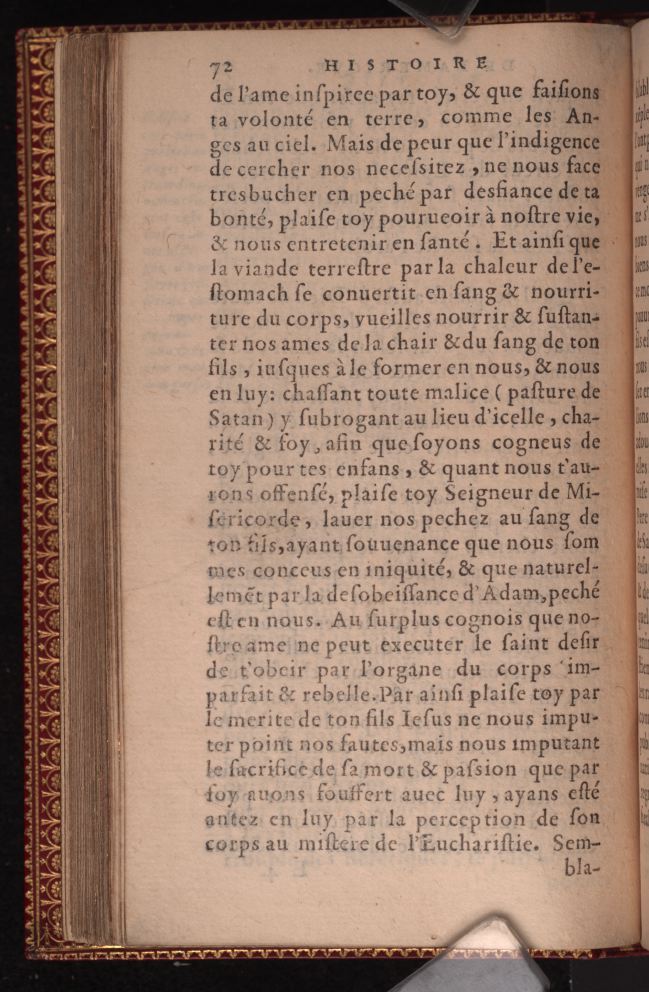 72 HISTOIRE
de l'ame inſpiree par toy, & que faiſions
ta volonté en terre, comme les An-
ges au ciel. Mais de peur que l'indigence
de cercher nos neceſsitez, ne nous face
tresbucher en peché par desfiance de ta
bonté, plaiſe toy pourueoir à noſtre vie,
& nous entretenir en ſanté. Et ainſi que
la viande terreſtre par la chaleur de l'e-
ſtomach ſe conuertit en ſang & nourri-
ture du corps, vueilles nourrir & ſuſtan-
ter nos ames de la chair & du ſang de ton
fils, iuſques à le former en nous, & nous
en luy: chaſſant toute malice (paſture de
Satan) y ſubrogant au lieu d'icelle, cha-
rité & foy, afin que ſoyons cogneus de
toy pour tes enfans, & quant nous t'au-
rons offenſé, plaiſe toy Seigneur de Mi-
ſericorde, lauer nos pechez au ſang de
ton fils, ayant ſouuenance que nous ſom
mes conceus en iniquité, & que naturel-
lemẽt par la deſobeiſſance d'Adam, peché
eſt en nous. Au ſurplus cognois que no-
ſtre ame ne peut executer le ſaint deſir
de t'obeir par l'organe du corps im-
parfait & rebelle. Par ainſi plaiſe toy par
le merite de ton fils Ieſus ne nous impu-
ter point nos fautes, mais nous imputant
le ſacrifice de ſa mort & paſsion que par
foy auons ſouffert auec luy, ayans eſté
antez en luy par la perception de ſon
corps au miſtere de l'Euchariſtie. Sem-
bla-